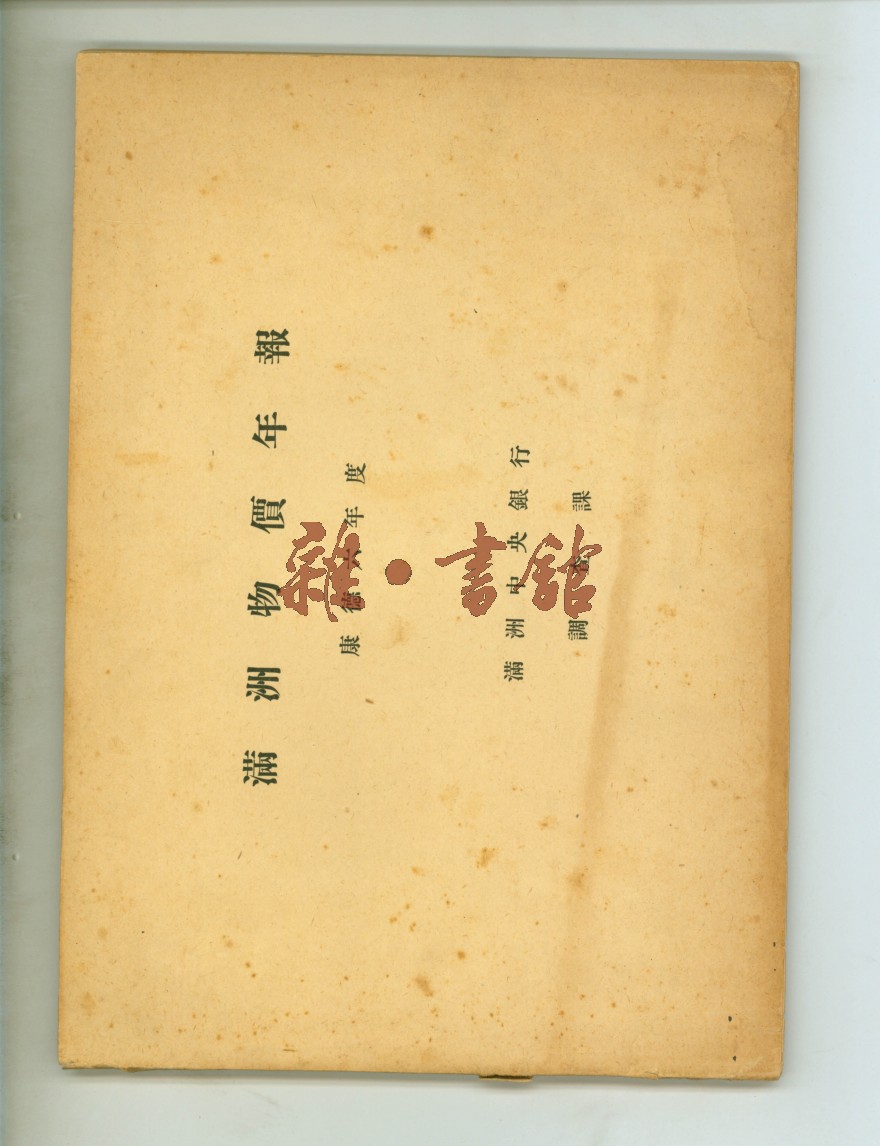 滿洲物價年報
康德六年度
滿洲中央銀行
調查課
雜·書館